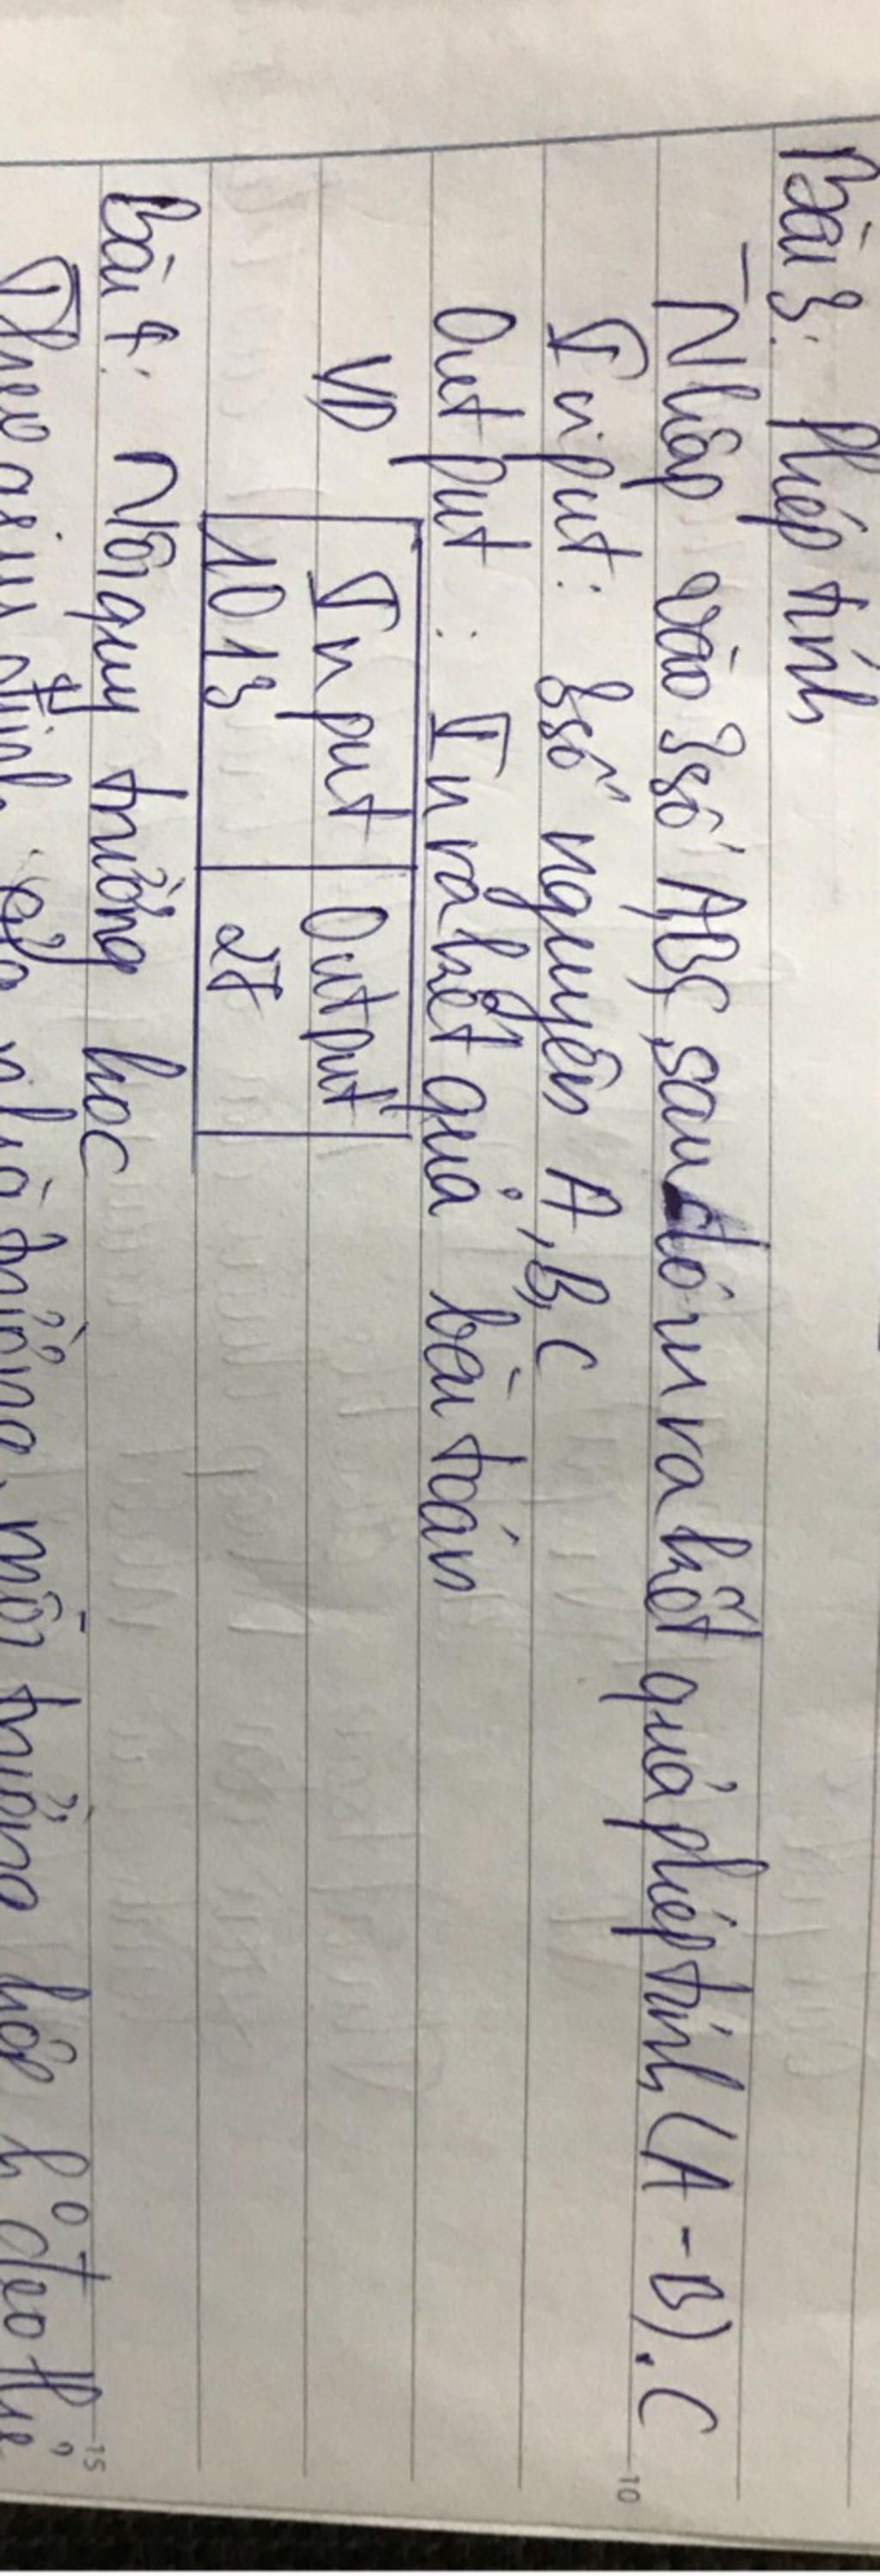 Bài 3: Phép tính
- Nhập vào 3 số A,B,C, sau đó in ra kết quả phép tính (A - B).C
Input: 3 số nguyên A, B, C
Output: In ra kết quả bài toán
VD
Input Output
10 1 3 27
Bài 4: Nội quy trường học
Theo quy định của nhà trường, mỗi trường hợp đeo thẻ
10
15